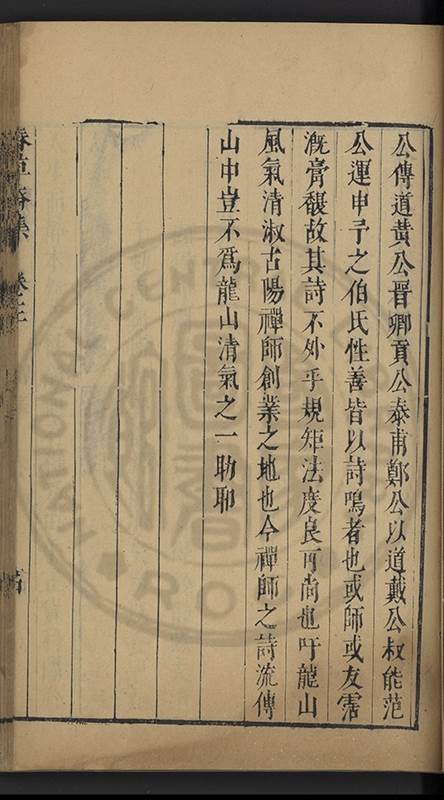 公傳道黄公晋卿貢公泰甫鄭公以道戴公叔能范
公運申予之伯氏性善皆以詩鳴者也或師或友霑
溉膏馥故其詩不外乎規矩法度良可尚也吁龍山
風氣清淑古陽禪師創業之地也今禪師之詩流傳
山中豈不爲龍山清氣之一助耶
春草齋集 卷之二